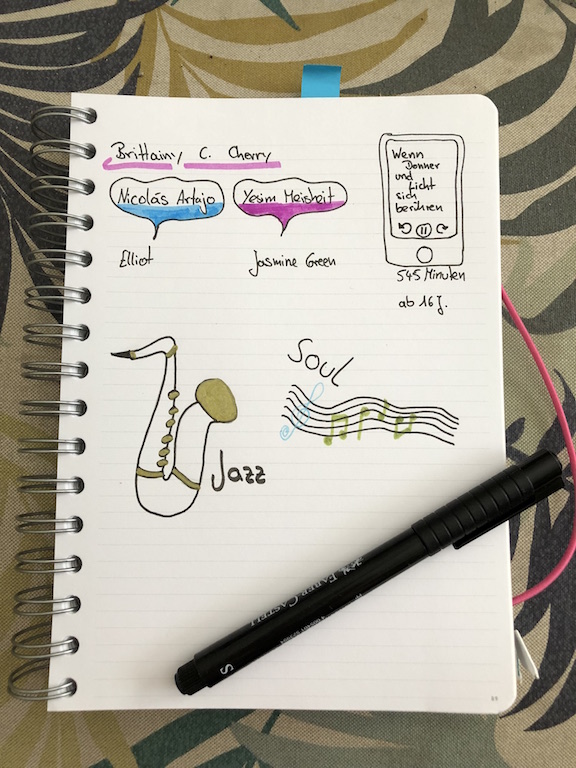 Brittainy C. Cherry
Nicolás Artajo
Yesim Meisheit
Elliot
Jasmine Green
Wenn
Donner
und
Licht
sich
berühren
545 Minuten
ab 16 J.
Soul
Jazz
FABER-CASTELL
S